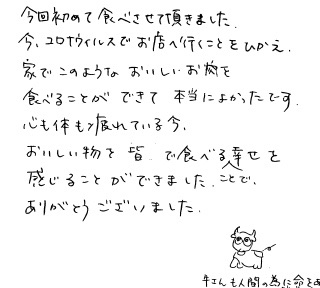 今回初めて食べさせて頂きました.
今、コロナウィルスでお店へ行くことをひかえ.
家でこのような おいしい お肉を
食べることが できて 本当によかったです.
心も体も疲れている今.
おいしい物を 皆.で食べる幸せを
感じること ができました.ことで.
ありがとう ございました.
牛さんも人間の為に命を